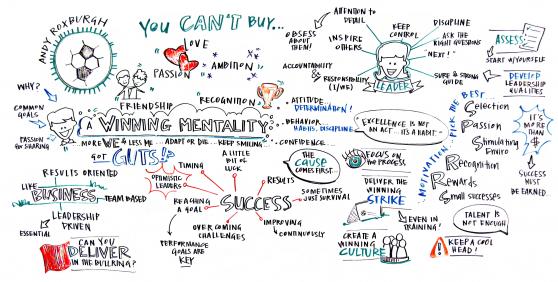 ANDY ROXBURGH
YOU CAN'T BUY...
LOVE
PASSION
AMBITION
FRIENDSHIP
RECOGNITION
WHY?
COMMON
GOALS
PASSION
for SHARING
A WINNING MENTALITY
MORE WE & LESS ME... ADAPT OR DIE... KEEP SMILING...
GOT GUTS!
RESULTS ORIENTED
LIKE
BUSINESS
TEAM BASED
LEADERSHIP
DRIVEN
ESSENTIAL
CAN YOU
DELIVER
IN THE BULLRING?
ATTENTION to
DETAIL
OBSESS
ABOUT
THEM!
INSPIRE
OTHERS
KEEP
CONTROL
DISCIPLINE
ASK THE
RIGHT QUESTIONS
NEXT!
SURE & STRONG
GUIDE
ACCOUNTABILITY
&
RESPONSIBILITY
(I/WE)
LEADER
ASSESS
START w/YOURSELF
DEVELOP
LEADERSHIP
QUALITIES
ATTITUDE
DETERMINATION!
BEHAVIOR
HABITS, DISCIPLINE
CONFIDENCE
"EXCELLENCE IS NOT
AN ACT - IT'S A HABIT"
MOTIVATION - PICK THE BEST
Selection
Passion
Stimulating
Enviro
Recognition
Rewards
Small successes
MORE
THAN
$
SUCCESS
MUST
BE EARNED
TALENT IS
NOT ENOUGH
KEEP A COOL
HEAD!
TIMING
A LITTLE
BIT OF
LUCK
OPTIMISTIC
LEADERS
REACHING
A GOAL
SUCCESS
RESULTS
SOMETIMES
JUST SURVIVAL
IMPROVING
CONTINUOUSLY
OVERCOMING
CHALLENGES
PERFORMANCE
GOALS ARE
KEY
THE
CAUSE
COMES FIRST
FOCUS ON
the PROCESS
DELIVER
THE WINNING
STRIKE
EVEN IN
TRAINING!
CREATE A
WINNING
CULTURE